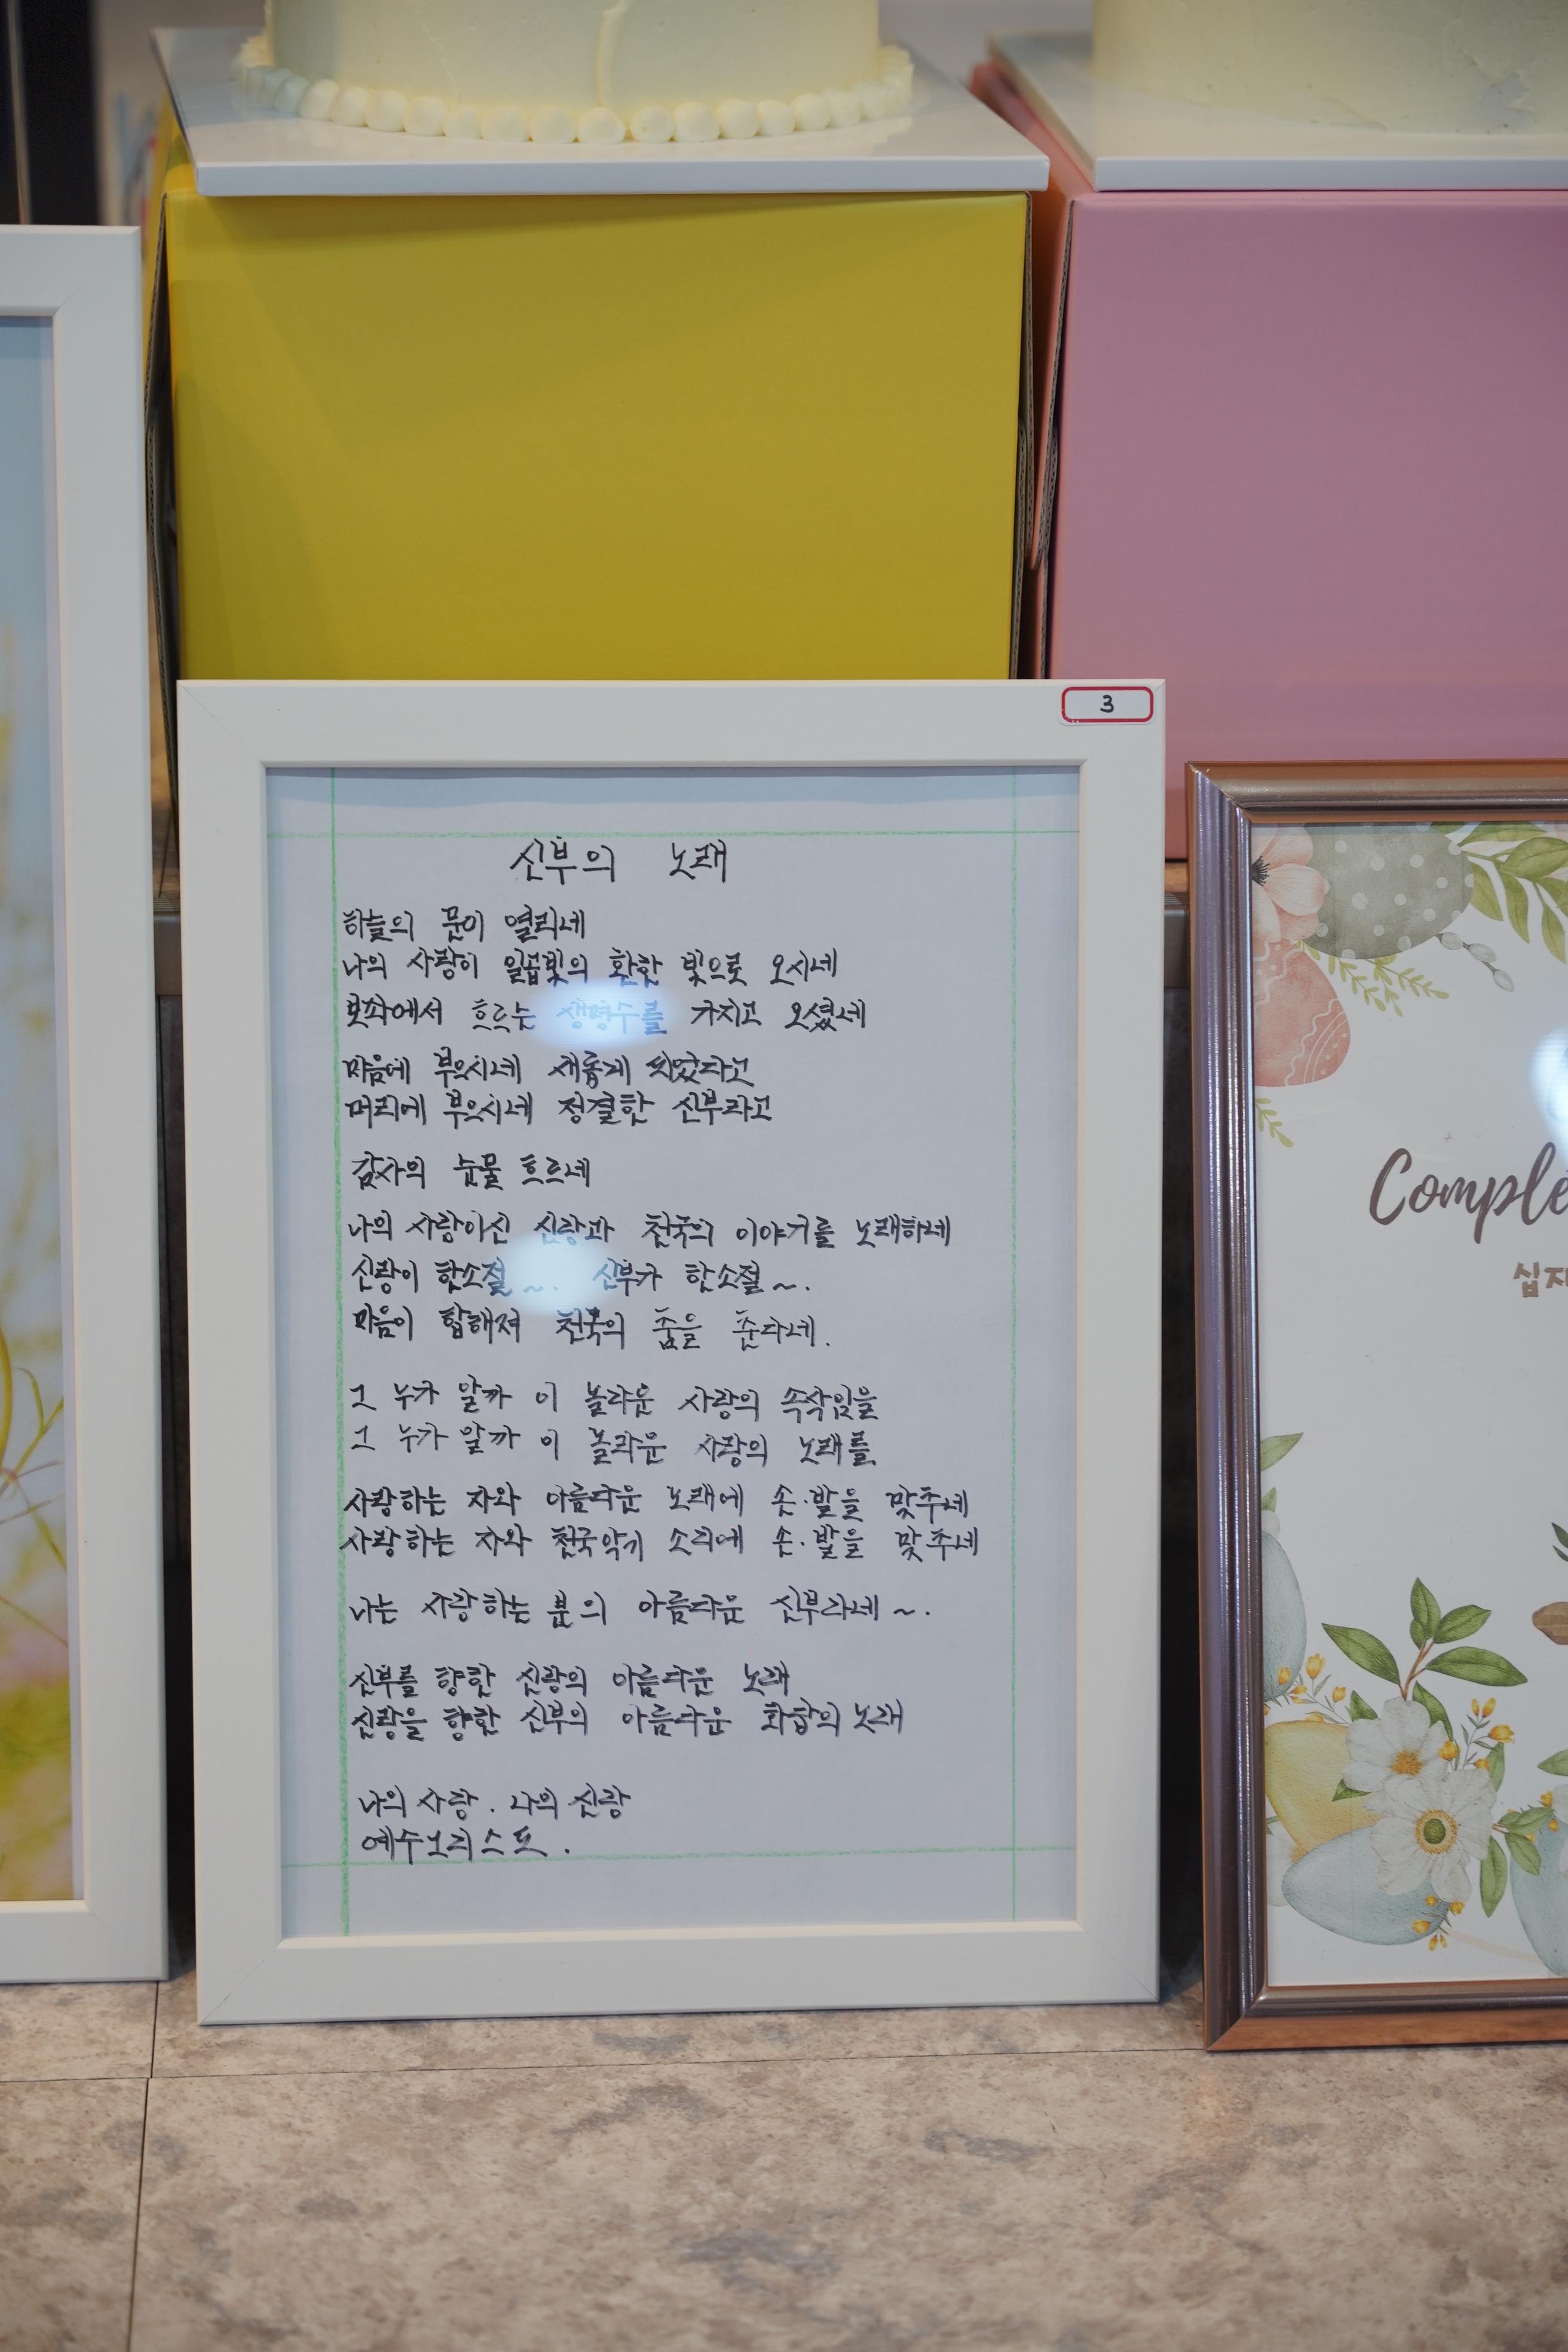 3
신부의 노래
하늘의 문이 열리네
나의 사랑이 일곱빛의 환한 빛으로 오시네
보좌에서 흐르는 생명수를 가지고 오셨네
마음에 부으시네 새롭게 씻었다고
머리에 부으시네 정결한 신부라고
감사의 눈물 흐르네
나의 사랑이신 신랑과 천국의 이야기를 노래하네
신랑이 한소절~. 신부가 한소절~.
마음이 합해져 천국의 춤을 춘다네.
그 누가 알까 이 놀라운 사랑의 속삭임을
그 누가 알까 이 놀라운 사랑의 노래를
사랑하는 자와 아름다운 노래에 손·발을 맞추네
사랑하는 자와 천국악기 소리에 손·발을 맞추네
나는 사랑하는 분의 아름다운 신부라네~.
신부를 향한 신랑의 아름다운 노래
신랑을 향한 신부의 아름다운 화합의 노래
나의 사랑. 나의 신랑
예수그리스도.
Comple
십자